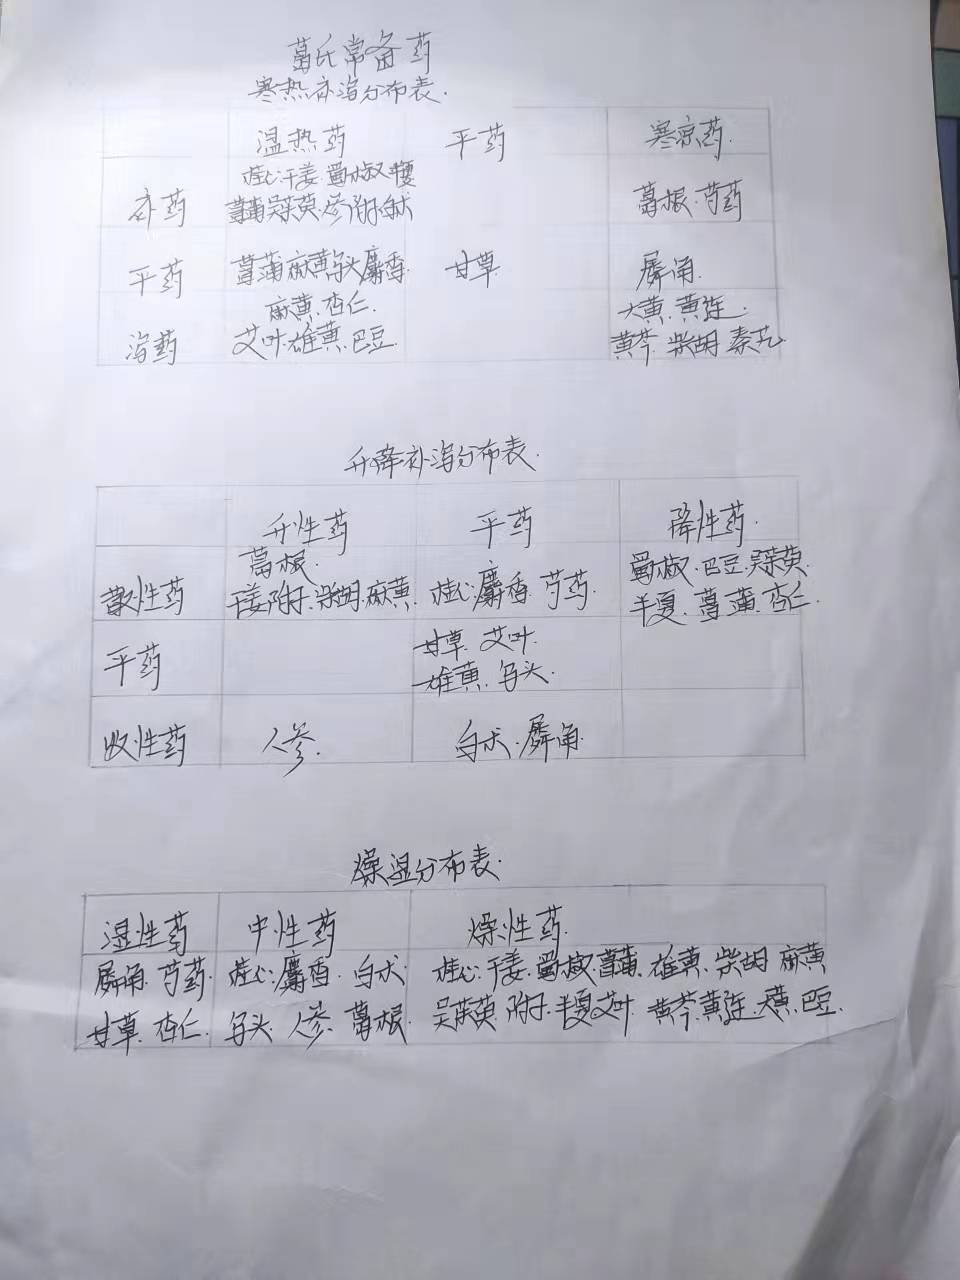 葛氏常备药
寒热补泻分布表.
温热药 平药 寒凉药.
桂心干姜 蜀椒
补药 菖蒲吴茱萸.人参附子白术 葛根.芍药
平药 菖蒲麻黄乌头麝香 甘草 犀角.
麻黄.杏仁. 大黄.黄连.
泻药 艾叶雄黄.巴豆. 黄芩.柴胡 秦艽.
升降补泻分布表.
升性药 平药 降性药.
葛根. 蜀椒.巴豆.吴茱萸.
散性药 干姜附子.柴胡.麻黄. 桂心.麝香.芍药. 半夏.菖蒲.杏仁.
平药 甘草.艾叶.
雄黄.乌头.
收性药 人参. 白术.犀角.
燥湿分布表.
湿性药 中性药 燥性药.
犀角.芍药. 桂心.麝香.白术 桂心.干姜.蜀椒.菖蒲.雄黄.柴胡.麻黄
甘草.杏仁. 乌头.人参.葛根 吴茱萸.附子.半夏艾叶.黄芩.黄连.大黄.巴豆.